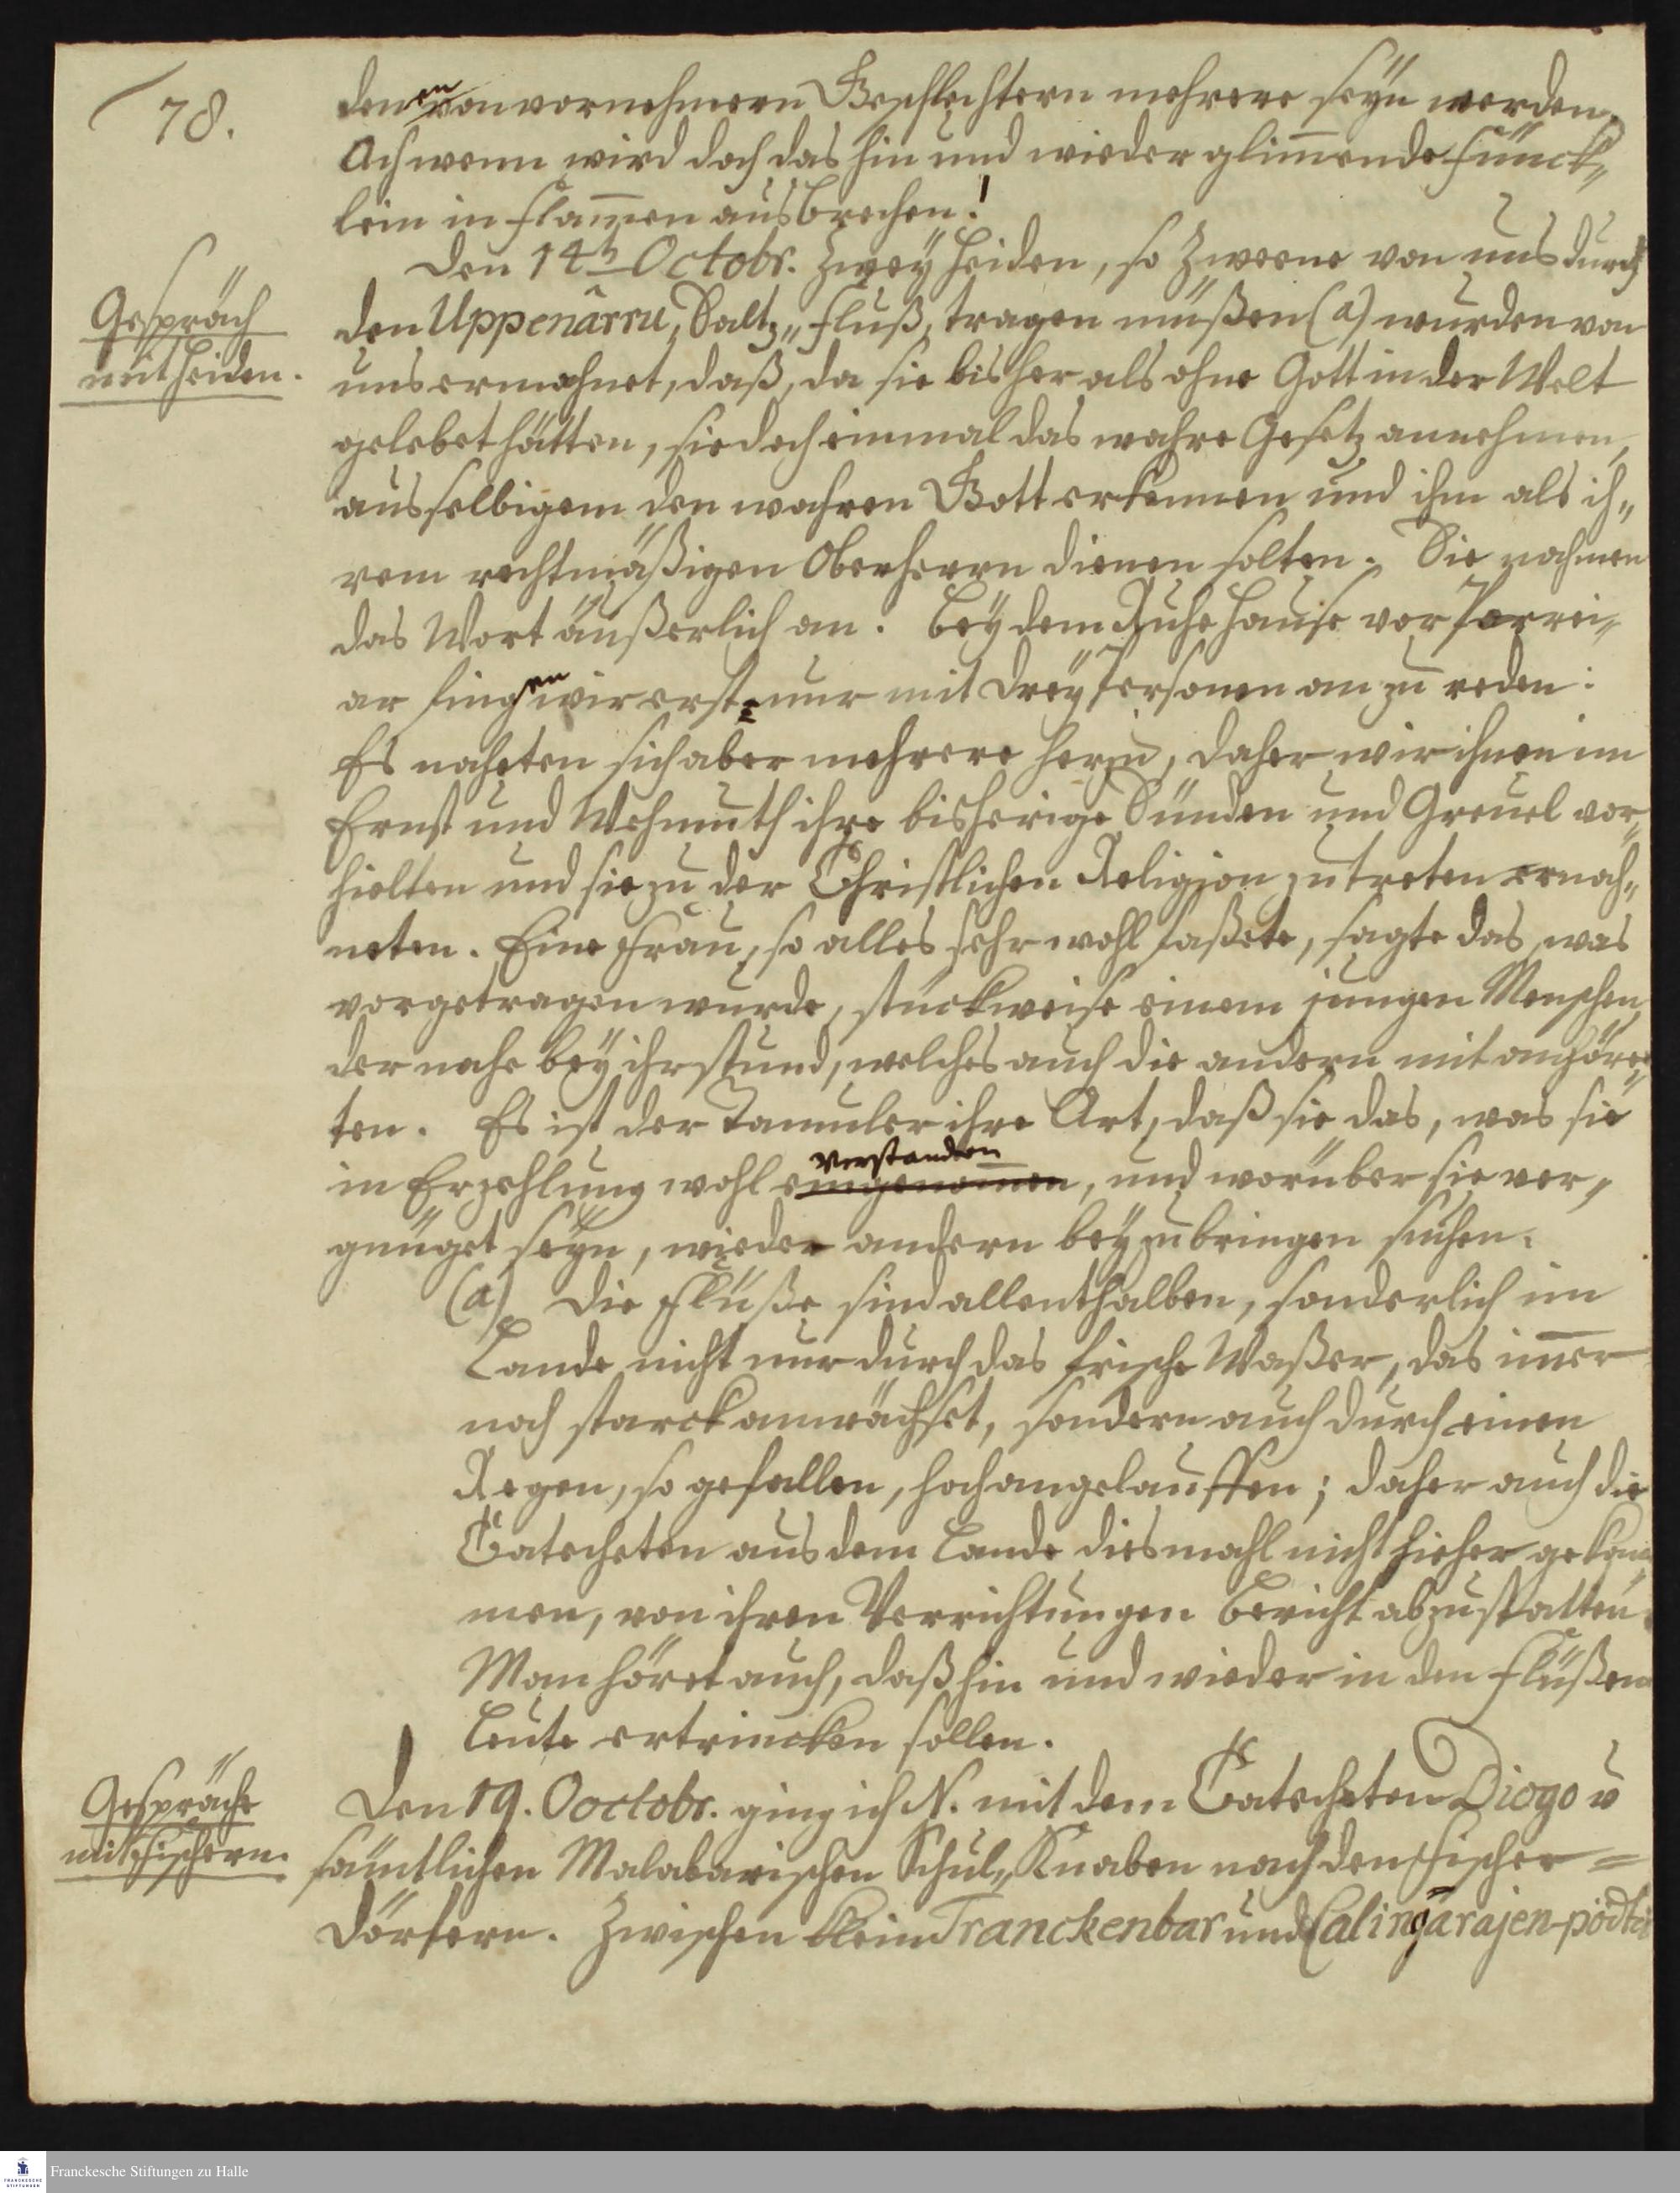 78.
denen von vornehmern Geschlechtern mehrere seyn werden,
Ach wenn wird doch das hin und wieder glim̄ende Fünck„
lein in Flam̄en ausbrechen!
Den 14t. Octobr. Zwey Heiden, so Zweene von uns durch
Gespräch
mit Heiden.
den Uppenârru, Saltz„Fluß, tragen müßen (a) wurden von
uns ermahnet, daß, da sie bisher als ohne Gott in der Welt
gelebet hätten, sie doch einmal das wahre Gesetz annehmen,
aus selbigem den wahren Gott erkennen und ihm als ih„
rem rechtmäßigen Oberherrn dienen solten. Sie nahmen
das Wort äußerlich an. Bey dem Ruhe Hause vor Porrei„
ar fingen wir erst nur mit drey Personen an zu reden:
Es naheten sich aber mehrere herzu, daher wir ihnen im
Ernst und Wehmuth ihre bisherige Sünden und Greuel vor„
hielten und sie zu der Christlichen Religion zutreten ermah„
neten. Eine Frau, so alles sehr wohl faßete, sagte das, was
vorgetragen wurde, stückweise einem jungen Menschen,
der nahe bey ihr stund, welches auch die andern mit anhöre„
ten. Es ist der Tamuler ihre Art, daß sie das, was sie
verstanden
in Erzehlung wohl eingenom̄en, und worüber sie ver„
gnüget seyn, wieder andern beyzubringen suchen.
(a) Die Flüße sind allenthalben, sonderlich im
Lande nicht nur durch das frische Waßer, das im̄er
noch starck anwächset, sondern auch durch einen
Regen, so gefallen, hoch angelauffen; daher auch die
Catecheten aus dem Lande diesmahl nicht hieher gekom„
men, von ihren Verrichtungen Bericht abzustatten.
Man höret auch, daß hin und wieder in den Flüßen
Leute ertrincken sollen.
Gespräche
mit Fischern.
Den 19. Ooctobr. ging ich N. mit dem Catecheten Diogo ū
sämtlichen Malabarischen Schul„Knaben nach den Fischer=
Dörfern. Zwischen klein Tranckenbar und Calingarajen-pödtei
Franckesche Stiftungen zu Halle